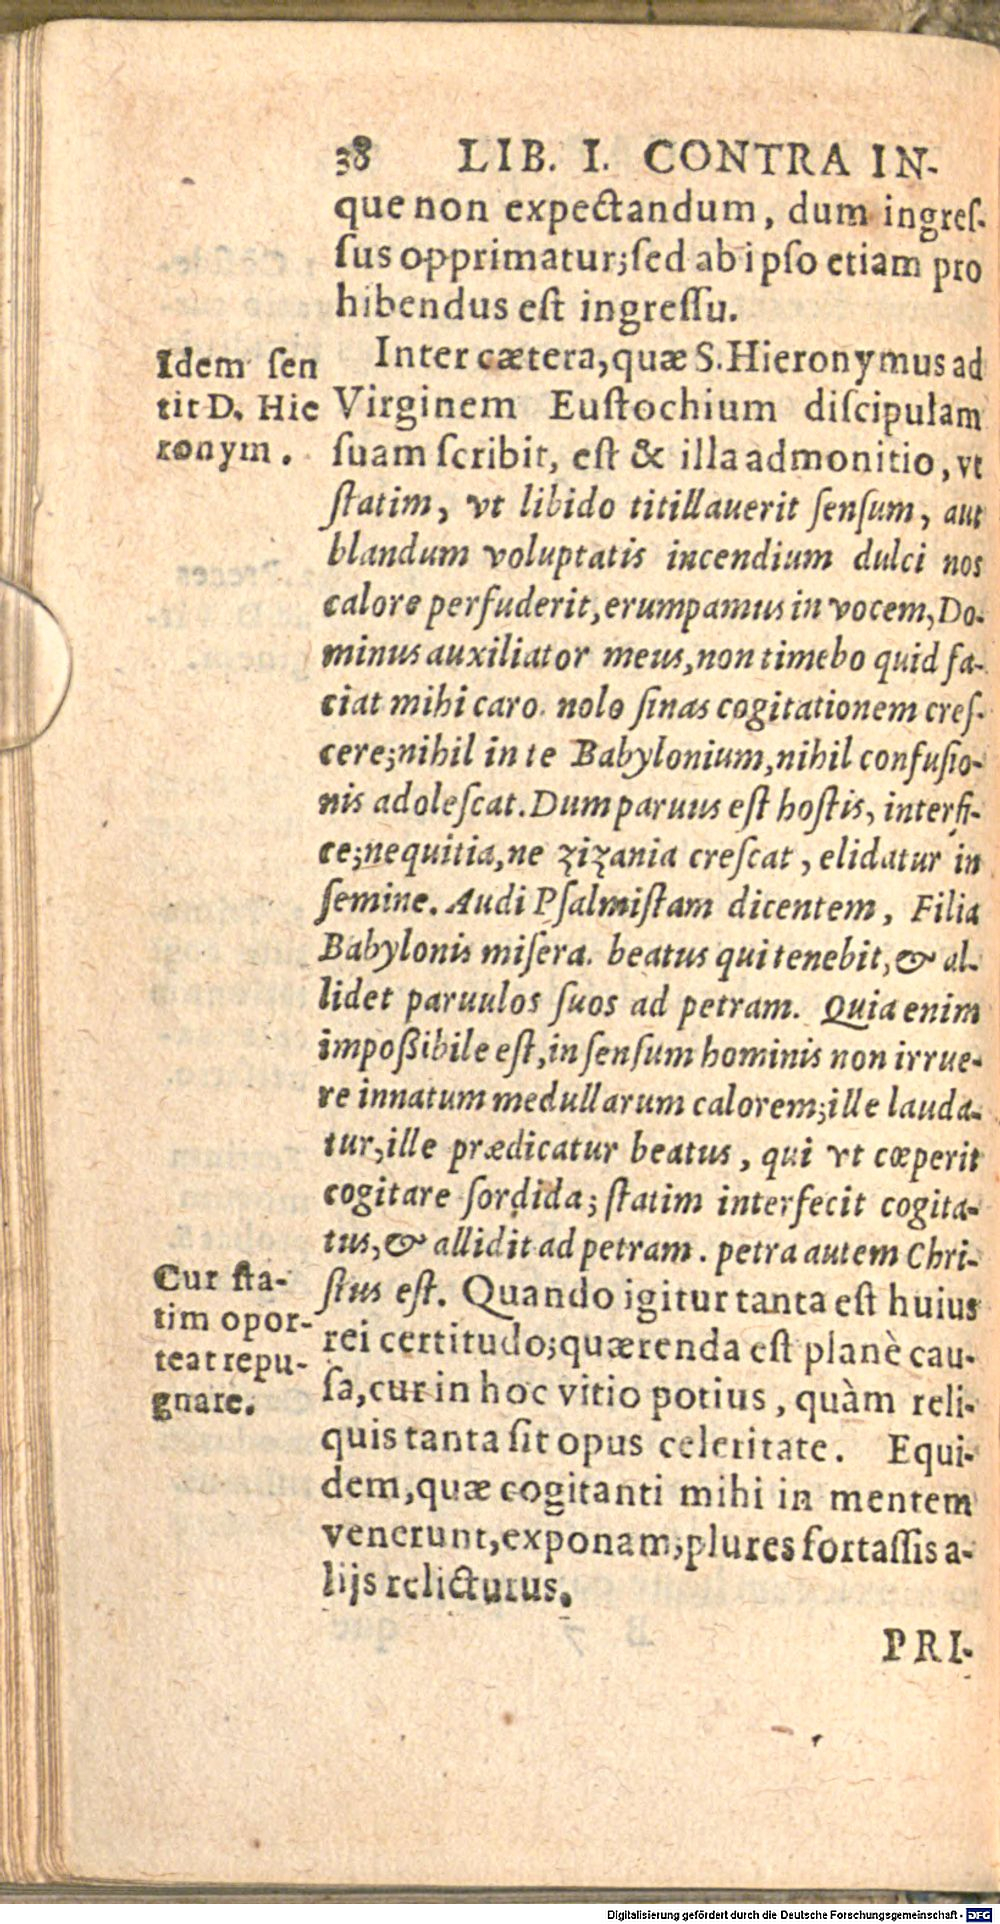 38 LIB. I. CONTRA IN-
que non expectandum, dum ingreſ-
ſus opprimatur; ſed ab ipſo etiam pro
hibendus eſt ingreſſu.
Idem ſen
tit D. Hie
ronym.
Inter cætera, quæ S. Hieronymus ad
Virginem Euſtochium diſcipulam
ſuam ſcribit, eſt & illa admonitio, vt
ſtatim, vt libido titillauerit ſenſum, aut
blandum voluptatis incendium dulci nos
calore perfuderit, erumpamus in vocem, Do-
minus auxiliator meus, non timebo quid fa-
ciat mihi caro. nolo ſinas cogitationem creſ-
cere; nihil in te Babylonium, nihil confuſio-
nis adoleſcat. Dum paruus eſt hoſtis, interfi-
ce; nequitia, ne zizania creſcat, elidatur in
ſemine. Audi Pſalmiſtam dicentem, Filia
Babylonis miſera. beatus qui tenebit, & al-
lidet paruulos ſuos ad petram. Quia enim
impoßibile eſt, in ſenſum hominis non irrue-
re innatum medullarum calorem; ille lauda-
tur, ille prædicatur beatus, qui vt cœperit
cogitare ſordida; ſtatim interfecit cogita-
tus, & allidit ad petram. petra autem Chri-
ſtus eſt. Quando igitur tanta eſt huius
rei certitudo; quærenda eſt planè cau-
ſa, cur in hoc vitio potius, quàm reli-
quis tanta ſit opus celeritate. Equi-
dem, quæ cogitanti mihi in mentem
venerunt, exponam; plures fortaſſis a-
lijs relicturus.
Cur ſta-
tim opor-
teat repu-
gnare.
PRI-
Digitalisierung gefördert durch die Deutsche Forschungsgemeinschaft - DFG